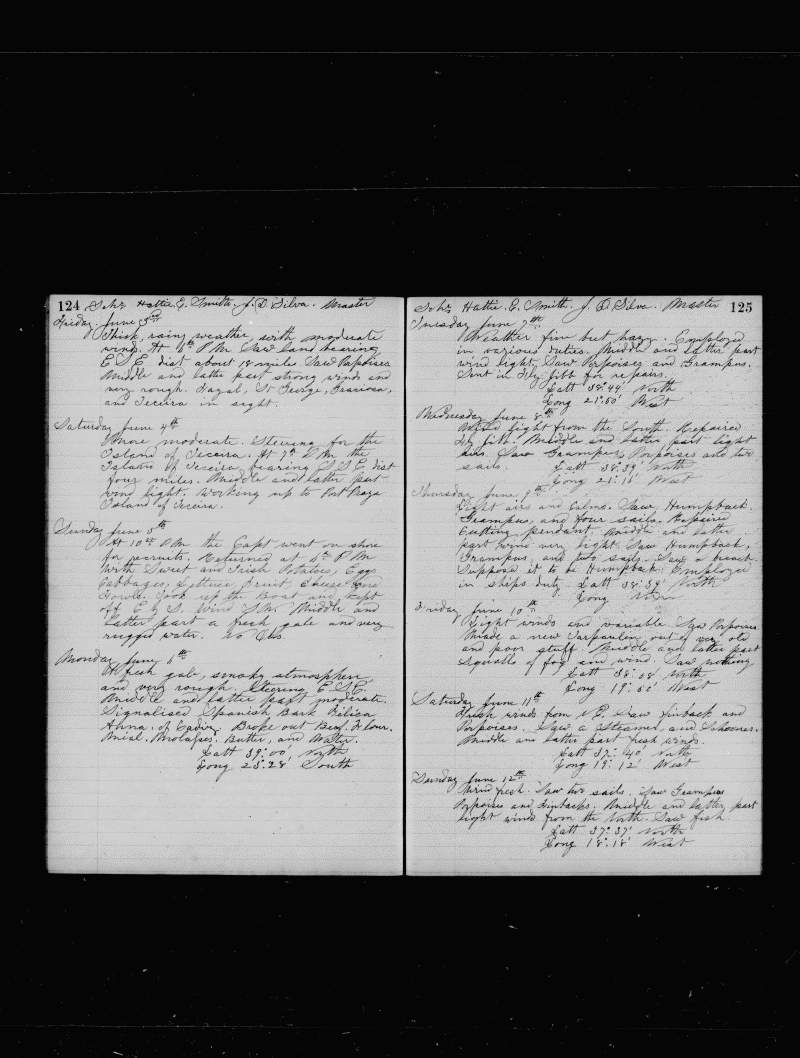 124 Schr Hattie E. Smith. J. D. Silva. Master
Friday June 3rd
Thick, rainy weather, with moderate
wind. At 4h P M. Saw land bearing
E S E dist about 18 miles. Saw Porpoises
Middle and latter part strong winds and
very rough. Fayal, St George, Graciosa,
and Teceira in sight.
Saturday June 4th
More moderate. Steering for the
Island of Teceira. At 9h P M the
Island of Teceira bearing S S E dist
four miles. Middle and latter part
wind light. Working up to Port Praya
Island of Teceira.
Sunday June 5th
At 10h P M the Capt went on shore
for recruits. Returned at 6h P M
With Sweet and Irish Potatoes, Eggs
Cabbages, Lettuce, Fruit, Cheese and
Fowls. Took up the Boat and kept
off E by S. Wind S W. Middle and
Latter part a fresh gale and very
rugged water. No Obs.
Monday June 6th
A fresh gale, smoky atmosphere
and very rough. Steering E.S.E.
Middle and latter part moderate.
Signalised Spanish Bark
Anna. of Cadiz. Broke out Beef. Flour.
Meal. Molasses. Butter, and Water.
Latt 39° 00' North
Long 23° 28' South
Schr Hattie E. Smith. J. D. Silva. Master 125
Tuesday June 7th
Weather fine but hazy. Employed
in various duties. Middle and latter part
wind light. Saw Porpoises and Grampus.
Sent in Fly Gibb for repairs.
Latt 38° 44' North
Long 21° 50' West
Wednesday June 8th
Wind light from the South. Repaired
Fly Gibb. Middle and latter part light
airs. Saw Grampus, Porpoises and two
sails. Latt 38° 39' North
Long 21° 11' West
Thursday June 9th
Light airs and Calms. Saw Humpback.
Grampus, and four sails. Repaired
Cutting pendant. Middle and latter
part wind very light. Saw Humpback,
Grampus and two sails. Saw a breach
Suppose it to be Humpback. Employed
in ships duty. Latt 38° 38' North
Long
Friday June 10th
Light winds and variable. Saw Porpoises
Made a new Tarpaulen out of very old
and poor stuff. Middle and latter part
Squalls of fog and wind. Saw nothing
Latt 38° 08' North
Long 19° 50' West
Saturday June 11th
Fresh winds from N.E. Saw finback and
Porpoises. Saw a Steamer, and Schooner.
Middle and latter part fresh winds.
Latt 37° 40' North
Long 19° 12' West
Sunday June 12th
Wind fresh. Saw two sails. Saw Grampus
Porpoises and Finbacks. Middle and latter part
light wind from the North. Saw fish.
Latt 37° 37' North
Long 18° 18' West